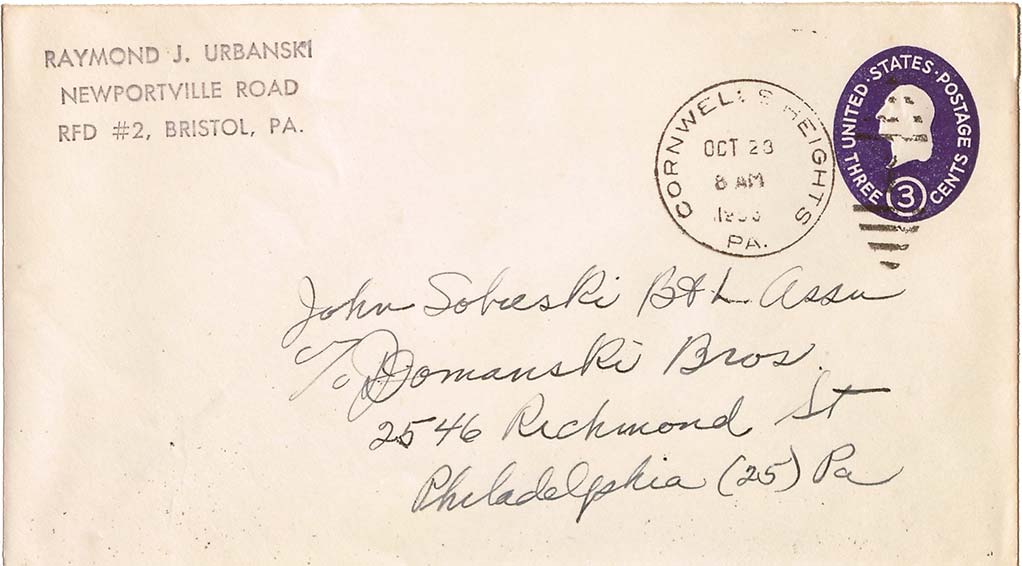 RAYMOND J. URBANSKI
NEWPORTVILLE ROAD
RFD #2, BRISTOL, PA.
CORNWELLS HEIGHTS
OCT 23
8 AM
PA.
UNITED STATES POSTAGE
THREE 3 CENTS
John Sobieski B & L Assn
c/o Domanski Bros.
2546 Richmond St
Philadelphia (25) Pa